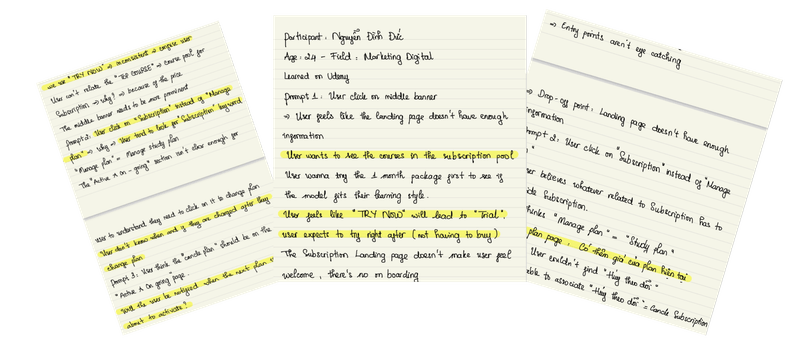 we use "TRY NOW" => inconsistent => confuse user
User can't relate the "TOP COURSE" => course pool for
Subscription => why? => because of the price
The middle banner needs to be more prominent
Prompt 2: User click on "Subscription" instead of "Manage
plan" => Why => User tend to look for "Subscription" keyword
"Manage plan" = Manage study plan
The "Active & On-going" section isn't clear enough for
user to understand they need to click on it to change plan
User don't know when and if they are changed after they
change plan
Prompt 3: User think the "cancle plan" should be on the
"Active & On going" page
Will the user be notified when the next plan
about to activate?
Participant: Nguyễn Đình Đức
Age: 24 - Field: Marketing Digital
Learned on Udemy
Prompt 1: User click on middle banner
=> User feels like the Landing page doesn't have enough
information
User wants to see the courses in the subscription pool
User wanna try the 1 month package first to see if
the model fits their learning style.
User feels like "TRY NOW" will lead to "Trial",
user expects to try right after (not having to buy)
The Subscription Landing page doesn't make user feel
welcome, there's no on boarding
=> Entry points aren't eye catching
=> Drop-off point: Landing page doesn't have enough
information
mpt 2: User click on "Subscription" instead of "Manage
"
er believes whatever related to Subscription has to
ide Subscription.
hinks "Manage plan" = "Study plan"
plan page, Có thêm giá của plan hiện tại
User couldn't find "Hủy theo dõi"
able to associate "Hủy theo dõi" = Cancle Subscription